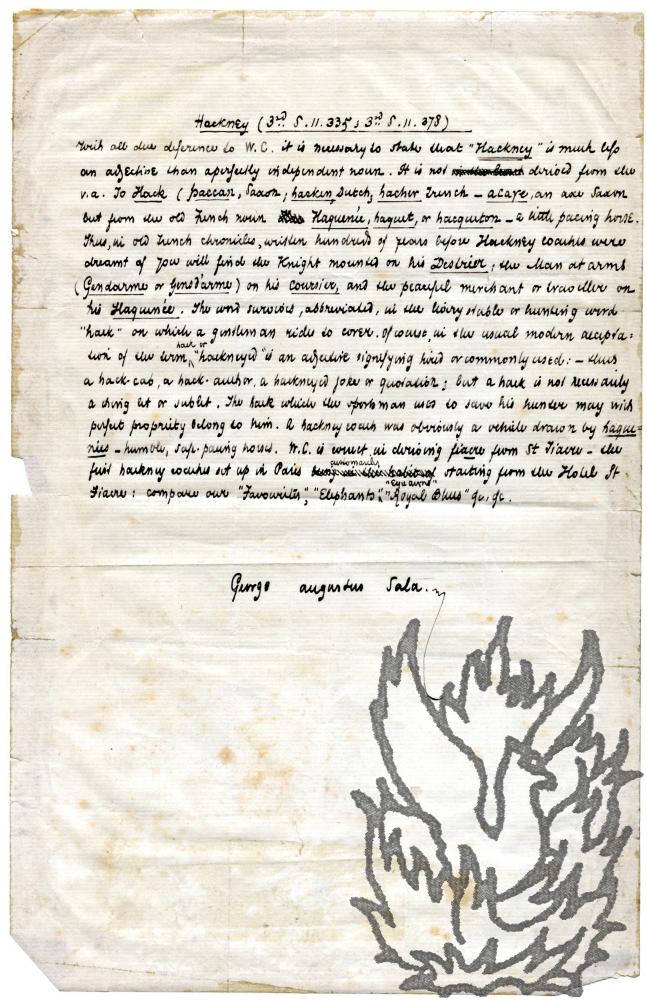 Hackney (3rd S. II. 335; 3rd S. II. 378)
With all due deference to W. C. it is necessary to state that "Hackney" is much less
an adjective than a perfectly independent noun. It is not derived from the
v. a. To Hack (haccan, Saxon; hacken Dutch; hacher French – acaxe, an axe Saxon
but from the old French noun Haquenée, haquet, or hacqueton – a little pacing horse.
Thus, in old French chronicles, written hundreds of years before Hackney coaches were
dreamt of you will find the Knight mounted on his Destrier; the Man at arms
(Gendarme or Gensdarme) on his Coursier, and the peaceful merchant or traveller on
his Haquenée. The word survives, abbreviated, in the livery stable or hunting word
"hack" on which a gentleman rides to cover. Of course, in the usual modern accepta=
tion of the term, hack or "hackneyed" is an adjective signifying hired or commonly used: – thus
a hack-cab, a hack-author, a hackneyed joke or quotation; but a hack is not necessarily
a thing let or sublet. The hack which the sportsman uses to save his hunter may with
perfect propriety belong to him. A hackney coach was obviously a vehicle drawn by haque=
nées – humble, safe-pacing horses. W. C. is correct in deriving fiacre from St Fiacre – the
first hackney coaches set up in Paris customarily starting from the Hotel St
Fiacre: compare our "Favourites", "Elephants", "Royal Blues" &c, &c.
George Augustus Sala.